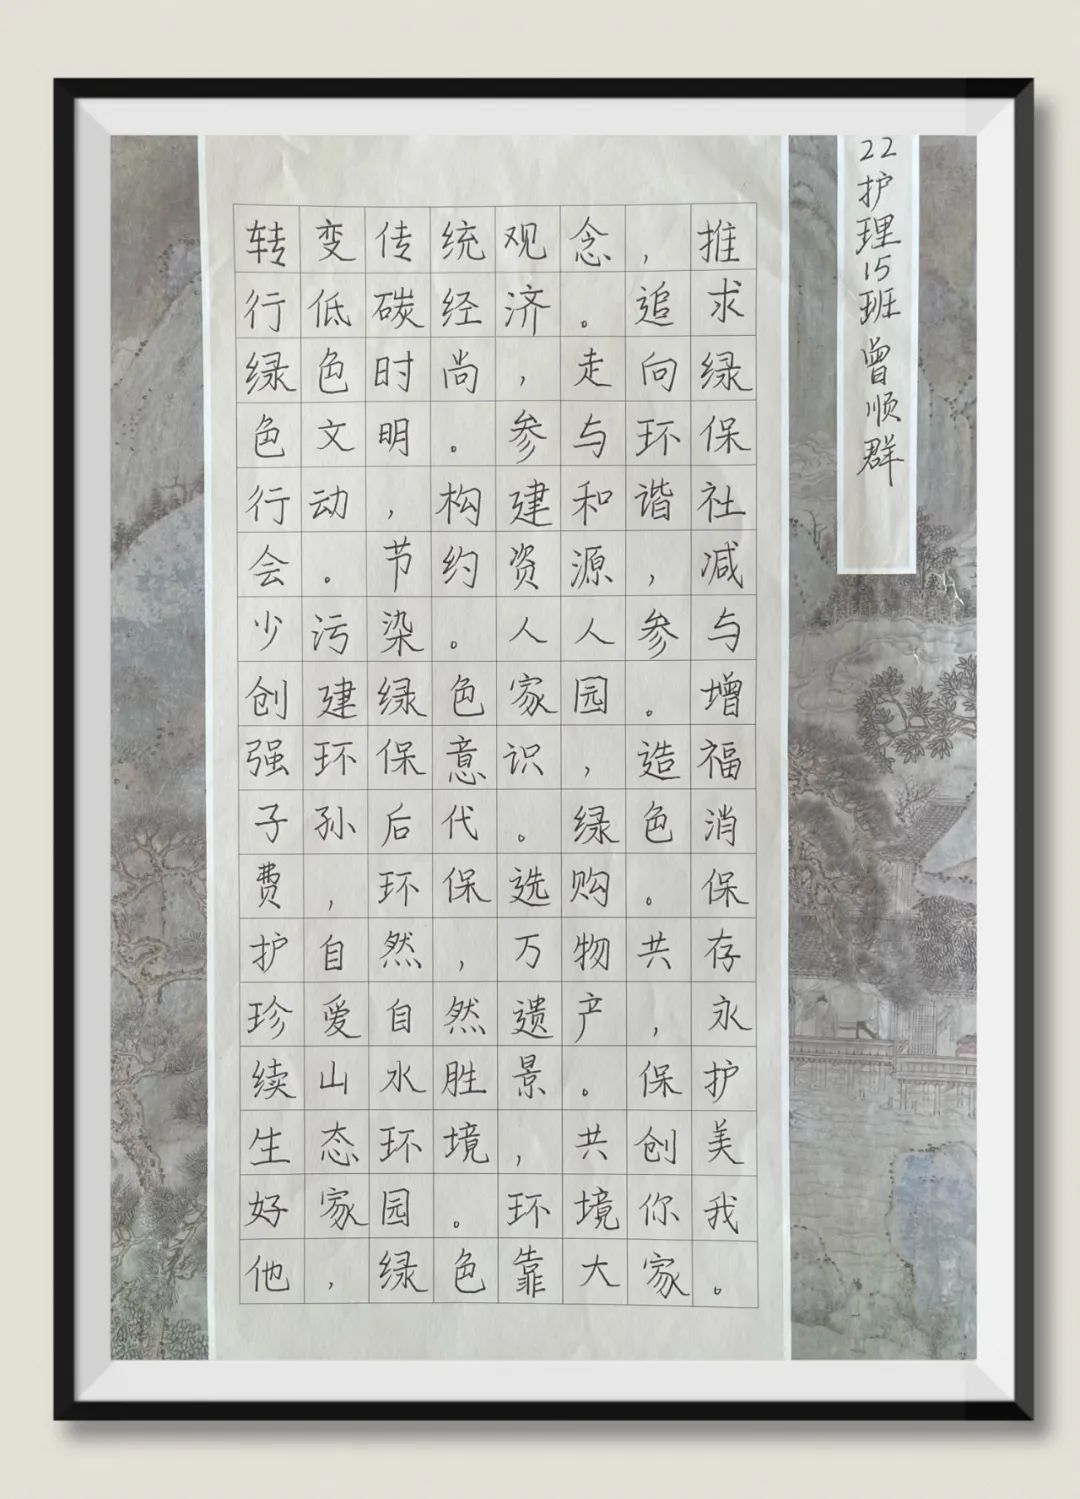 转变传统观念，推
行低碳经济。追求
绿色时尚，走向绿
色文明。参与环保
行动，构建和谐社
会。节约资源，减
少污染。人人参与
创建绿色家园。增
强环保意识，造福
子孙后代。绿色消
费，环保选购。保
护自然，万物共存
珍爱自然遗产，永
续山水胜景。保护
生态环境，共创美
好家园。环境你我
他，绿色靠大家。
22护理15班曾顺群